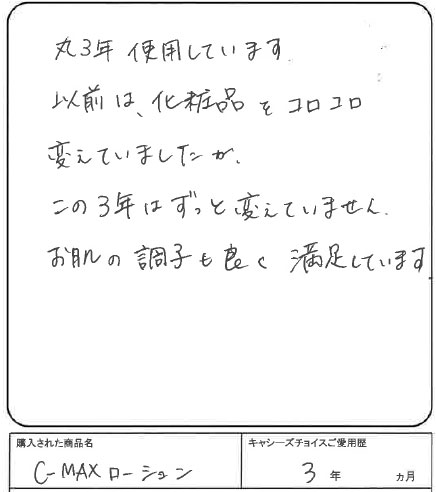 丸3年使用しています.
以前は、化粧品をコロコロ
変えていましたが、
この3年はずっと変えていません.
お肌の調子も良く 満足しています
購入された商品名
キャシーズチョイスご愛用歴
C-MAXローション
3年 カ月